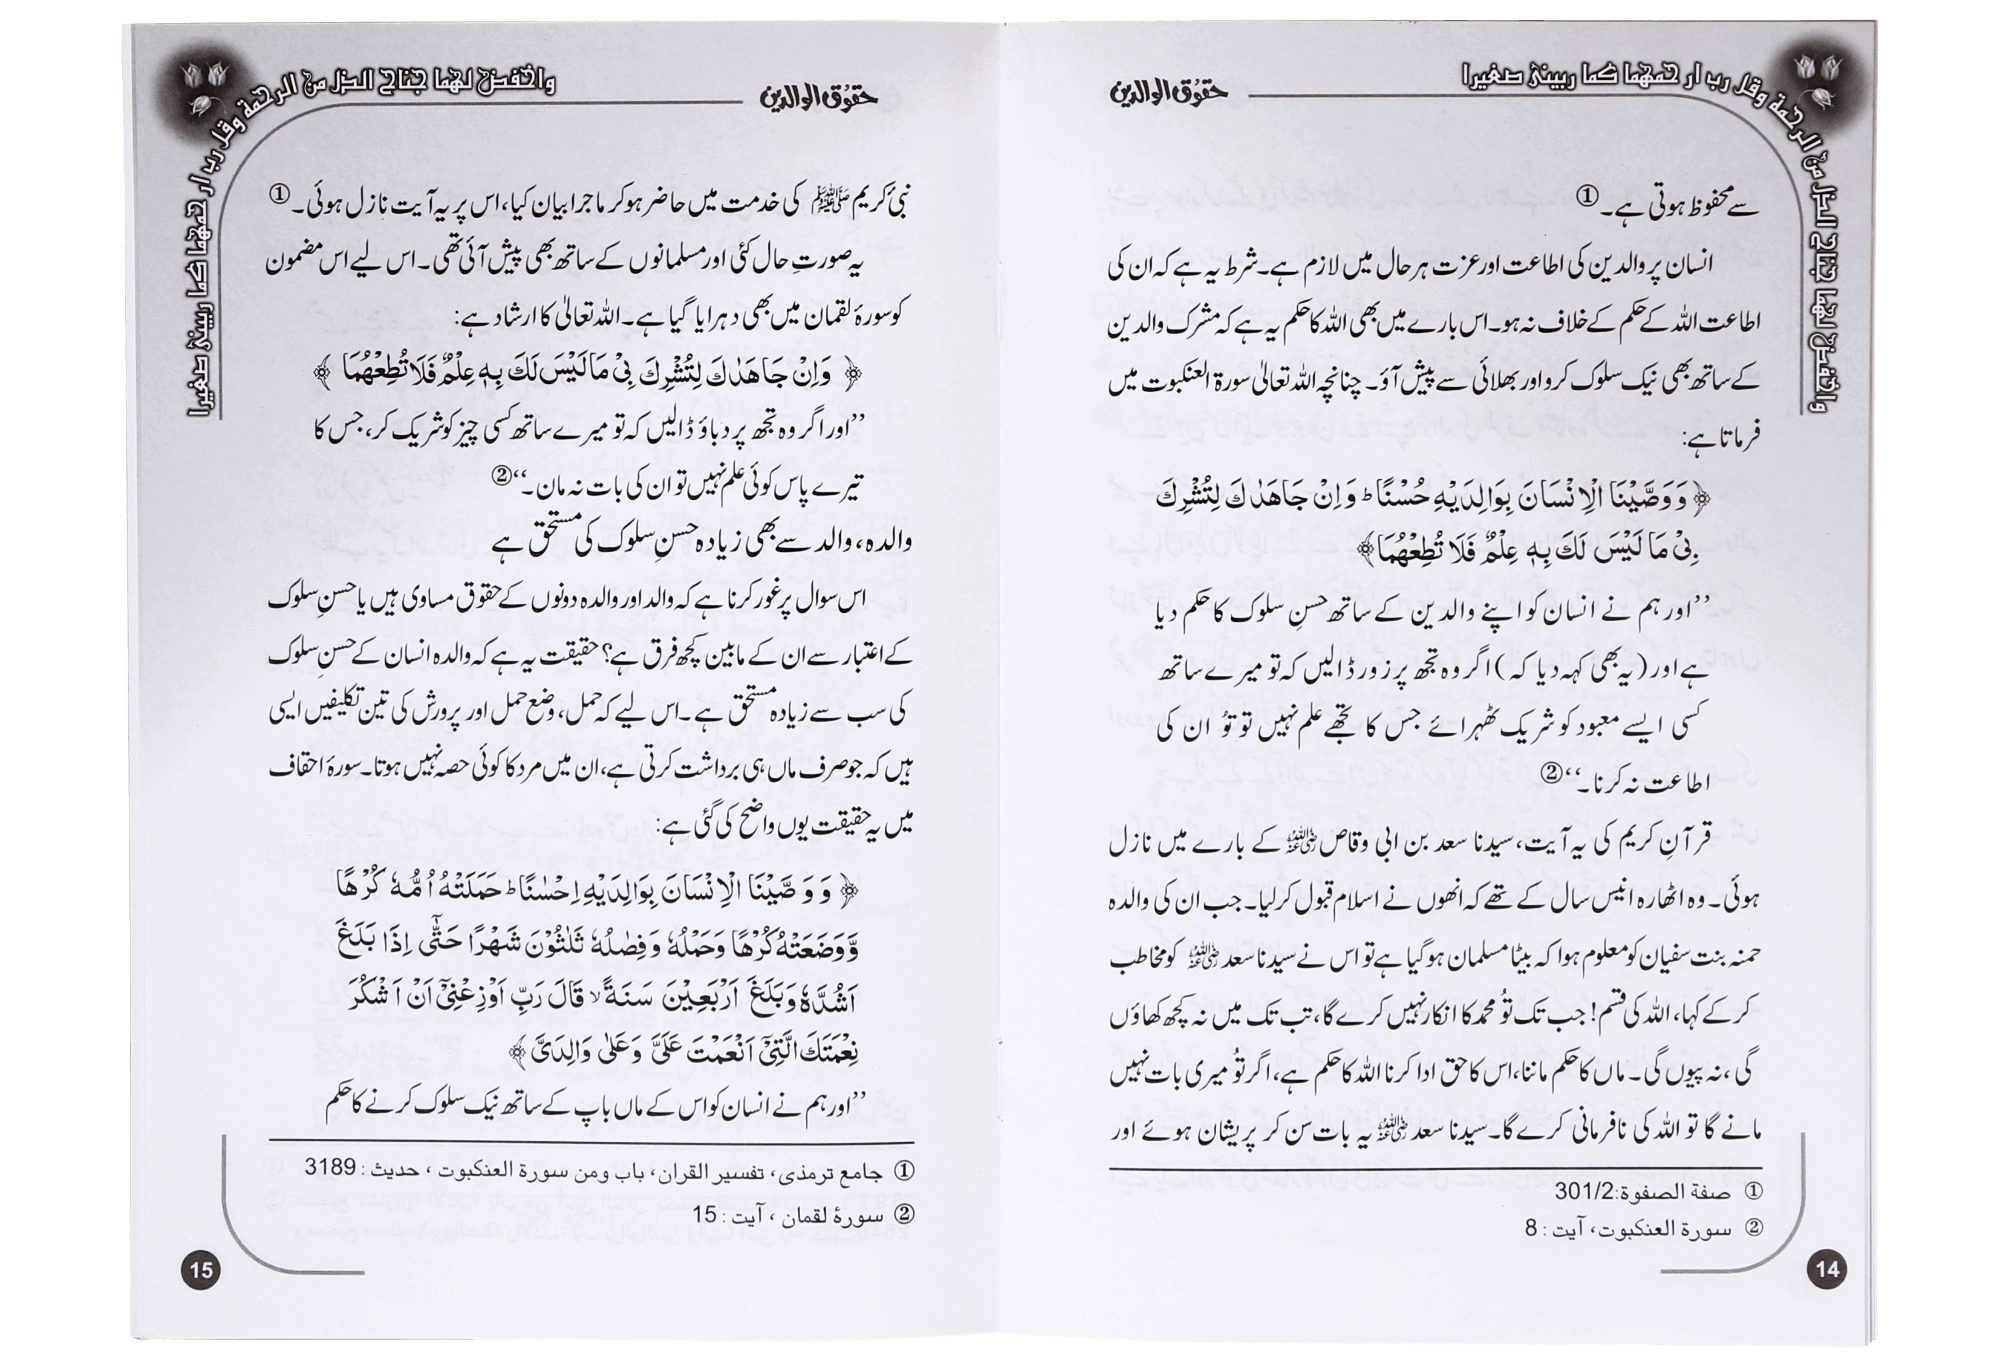 واخفض لهما جناح الذل من الرحمة وقل رب ارحمهما كما ربيني صغيرا
حقوق الوالدین
سے محفوظ ہوتی ہے۔ ①
انسان پر والدین کی اطاعت اور عزت ہر حال میں لازم ہے۔ شرط یہ ہے کہ ان کی
اطاعت اللہ کے حکم کے خلاف نہ ہو۔ اس بارے میں بھی اللہ کا حکم یہ ہے کہ مشرک والدین
کے ساتھ بھی نیک سلوک کرو اور بھلائی سے پیش آؤ۔ چنانچہ اللہ تعالیٰ سورۃ العنکبوت میں
فرماتا ہے:
﴿ وَوَصَّيْنَا الْاِنْسَانَ بِوَالِدَيْهِ حُسْنًا ؕ وَاِنْ جَاهَدٰكَ لِتُشْرِكَ
بِيْ مَا لَيْسَ لَكَ بِهٖ عِلْمٌ فَلَا تُطِعْهُمَا ﴾
’’اور ہم نے انسان کو اپنے والدین کے ساتھ حسنِ سلوک کا حکم دیا
ہے اور (یہ بھی کہہ دیا کہ) اگر وہ تجھ پر زور ڈالیں کہ تو میرے ساتھ
کسی ایسے معبود کو شریک ٹھہرائے جس کا تجھے علم نہیں تو تُو ان کی
اطاعت نہ کرنا۔‘‘ ②
قرآنِ کریم کی یہ آیت، سیدنا سعد بن ابی وقاص ؓ کے بارے میں نازل
ہوئی۔ وہ اٹھارہ انیس سال کے تھے کہ انھوں نے اسلام قبول کرلیا۔ جب ان کی والدہ
حمنہ بنت سفیان کو معلوم ہوا کہ بیٹا مسلمان ہوگیا ہے تو اس نے سیدنا سعد ؓ کو مخاطب
کرکے کہا، اللہ کی قسم! جب تک تُو محمد کا انکار نہیں کرے گا، تب تک میں نہ کچھ کھاؤں
گی، نہ پیوں گی۔ ماں کا حکم ماننا، اس کا حق ادا کرنا اللہ کا حکم ہے، اگر تُو میری بات نہیں
مانے گا تو اللہ کی نافرمانی کرے گا۔ سیدنا سعد ؓ یہ بات سن کر پریشان ہوئے اور
① صفة الصفوة: 301/2
② سورة العنكبوت، آیت : 8
14
واخفض لهما جناح الذل من الرحمة وقل رب ارحمهما كما ربيني صغيرا
حقوق الوالدین
نبیٔ کریم ﷺ کی خدمت میں حاضر ہوکر ماجرا بیان کیا، اس پر یہ آیت نازل ہوئی۔ ①
یہ صورتِ حال کئی اور مسلمانوں کے ساتھ بھی پیش آئی تھی۔ اس لیے اس مضمون
کو سورۂ لقمان میں بھی دہرایا گیا ہے۔ اللہ تعالیٰ کا ارشاد ہے:
﴿ وَاِنْ جَاهَدٰكَ لِتُشْرِكَ بِيْ مَا لَيْسَ لَكَ بِهٖ عِلْمٌ فَلَا تُطِعْهُمَا ﴾
’’اور اگر وہ تجھ پر دباؤ ڈالیں کہ تو میرے ساتھ کسی چیز کو شریک کر، جس کا
تیرے پاس کوئی علم نہیں تو ان کی بات نہ مان۔‘‘ ②
والدہ، والد سے بھی زیادہ حسنِ سلوک کی مستحق ہے
اس سوال پر غور کرنا ہے کہ والد اور والدہ دونوں کے حقوق مساوی ہیں یا حسنِ سلوک
کے اعتبار سے ان کے مابین کچھ فرق ہے؟ حقیقت یہ ہے کہ والدہ انسان کے حسنِ سلوک
کی سب سے زیادہ مستحق ہے۔ اس لیے کہ حمل، وضع حمل اور پرورش کی تین تکلیفیں ایسی
ہیں کہ جو صرف ماں ہی برداشت کرتی ہے، ان میں مرد کا کوئی حصہ نہیں ہوتا۔ سورۂ احقاف
میں یہ حقیقت یوں واضح کی گئی ہے:
﴿ وَوَصَّيْنَا الْاِنْسَانَ بِوَالِدَيْهِ اِحْسٰنًا ؕ حَمَلَتْهُ اُمُّهٗ كُرْهًا
وَّوَضَعَتْهُ كُرْهًا وَحَمْلُهٗ وَفِصٰلُهٗ ثَلٰثُوْنَ شَهْرًا حَتّٰۤى اِذَا بَلَغَ
اَشُدَّهٗ وَبَلَغَ اَرْبَعِيْنَ سَنَةً ۙ قَالَ رَبِّ اَوْزِعْنِيْۤ اَنْ اَشْكُرَ
نِعْمَتَكَ الَّتِيْۤ اَنْعَمْتَ عَلَيَّ وَعَلٰى وَالِدَيَّ ﴾
’’اور ہم نے انسان کو اس کے ماں باپ کے ساتھ نیک سلوک کرنے کا حکم
① جامع ترمذی، تفسير القران، باب ومن سورة العنكبوت، حدیث : 3189
② سورۂ لقمان، آیت : 15
15